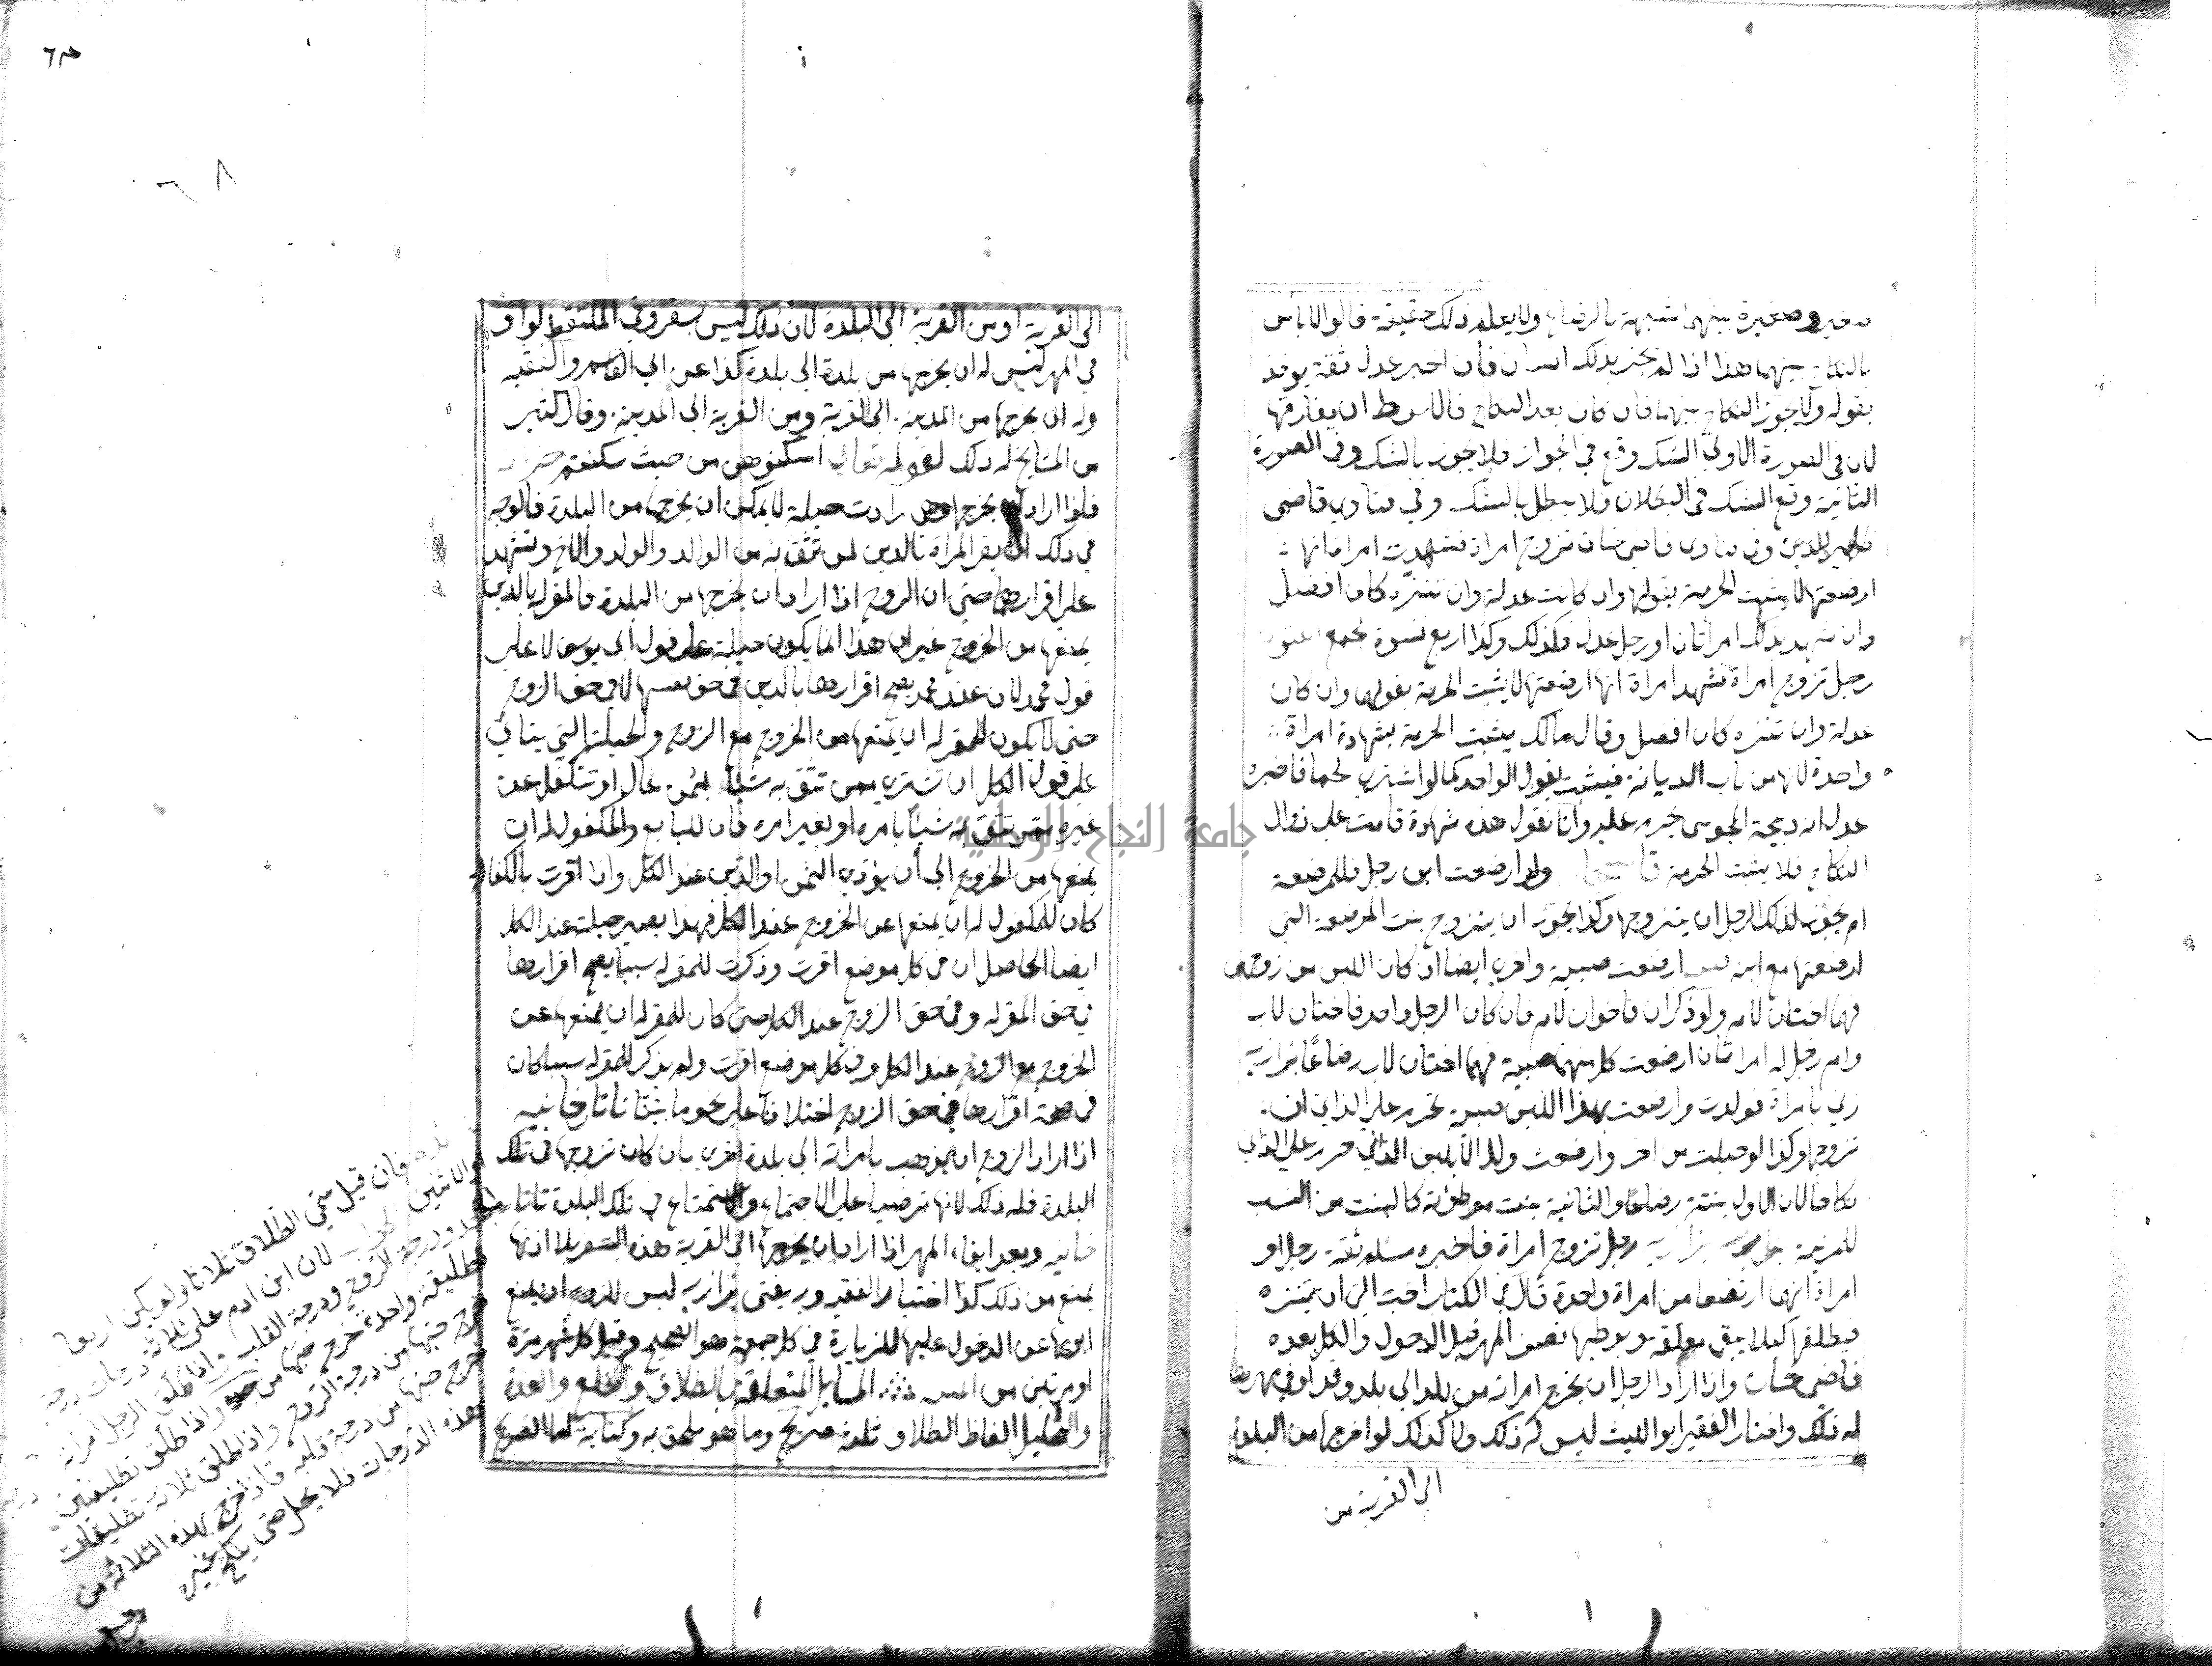 صغير وصغيرة بينهما شبهة بالرضاع ولا يعلم ذلك حقيقة قالوا لا باس
بالنكاح بينهما هذا اذا لم يخبر بذلك انسان فان اخبر عدل ثقة يوخذ
بقوله ولا يجوز النكاح بينهما فان كان بعد النكاح فالاحوط ان يفارقها
لان في الصورة الاولي الشك وقع في الجواز فلا يجوز بالشك وفي الصورة
الثانية وقع الشك في البطلان فلا يبطل بالشك وفي فتاوي قاضي
ظهير الدين وفي فتاوي قاضي خان تزوج امراة فشهدت امراة انها
ارضعتها لا يثبت الحرمة بقولها وان كانت عدلة وان تنزه كان افضل
وان شهد بذلك امراتان او رجل عدل فكذلك وكذا اربع نسوة مجمع
رجل تزوج امراة فشهد امراة انها ارضعتها لا يثبت الحرمة بقولها وان كان
عدلة وان تنزه كان افضل وقال مالك يثبت الحرمة بشهادة امراة
واحدة لانها من باب الديانة فيثبت بقول الواحد كما لو اشتري لحما فاخبره
عدل انه ذبيحة المجوسي يحرم عليه وانا نقول هذه شهادة قامت علي زوال
النكاح فلا يثبت الحرمة ولو ارضعت ابن رجل فللمرضعة
ام يجوز لذلك الرجل ان يتزوجها وكذا يجوز ان يتزوج بنت المرضعة التي
ارضعتها مع ابنه ارضعت صبية واخري ايضا ان كان اللبن من زوجين
فهما اختان لام ولو ذكران فاخوان لام فان كان الرجل واحد فاختان لاب
وام رجل له امراتان ارضعت كل منهما صبية فهما اختان لاب رضاعا بزازيه
زني بامراة فولدت وارضعت بهذا اللبن صبية تحرم علي الزاني ان
تزوجها وكذا لو حبلت من اخر وارضعت ولدا لا بلبن الزاني حرم علي الزاني
نكاحا لان الاول بنته رضاعا والثانية بنت موطوئته كالبنت من النسب
للمزنية رجل تزوج امراة فاخبره مسلم ثقة رجل او
امراة انهما ارتضعا من امراة واحدة قال في الكتاب احب الي ان يتنزه
فيطلقها كيلا يبقي معلقة ويوطيها نصف المهر قبل الدخول والكل بعده
قاضي خان واذا اراد الرجل ان يخرج امراته من بلد الي بلد وقد اوفي مهرها
له ذلك واختار الفقيه ابو الليث ليس له ذلك ولا كذلك لو اخرجها من البلدة
الي القرية من
الي القرية او من القرية الي البلدة لان ذلك ليس بسفر وفي الملتقط لو اوفي
في المهر ليس له ان يخرجها من بلدة الي بلدة كذا عن ابي القاسم والفقيه
وله ان يخرجها من المدينة الي القرية ومن القرية الي المدينة وقال كثير
من المشايخ له ذلك لقوله تعالي اسكنوهن من حيث سكنتم
فاذا اراد ان يخرجها وهي ارادت حيلة لا يمكن ان يخرجها من البلدة فالوجه
في ذلك ان يقر المراة بالدين لمن تثق به من الوالد والولد والاخ وتشهد
علي اقرارها حتي ان الزوج اذا اراد ان يخرجها من البلدة فالمقر له بالدين
يمنعها من الخروج غير ان هذا انما يكون حيلة علي قول ابي يوسف لا علي
قول محمد لان عند محمد يصح اقرارها بالدين في حق نفسها لا في حق الزوج
حتي لا يكون للمقر له ان يمنعها من الخروج مع الزوج والحيلة التي يتاتي
علي قول الكل ان تشتري ممن تثق به شيئا بثمن غال او تتكفل عن
غيره ممن تثق به شيئا بامره او بغير امره فان للبايع والمكفول له ان
يمنعها من الخروج الي ان يؤدي الثمن او الدين عند الكل واذا اقرت بالكفالة
كان للمكفول له ان يمنعها عن الخروج عند الكل فهذا يصير حيلة عند الكل
ايضا الحاصل ان في كل موضع اقرت وذكرت للمقر له سببا يصح اقرارها
في حق المقر له وفي حق الزوج عند الكل حتي كان للمقر له ان يمنعها عن
الخروج مع الزوج عند الكل وفي كل موضع اقرت ولم يذكر للمقر له سببا كان
في صحة اقرارها في حق الزوج اختلافا علي نحو ما بيننا تاتارخانيه
اذا اراد الزوج ان يذهب بامراته الي بلدة اخري بان كان تزوجها في تلك
البلدة فله ذلك لانها ترضيا علي الاجتماع والاستمتاع في تلك البلدة تاتار
خانيه وبعد ايفاء المهر اذا اراد ان يخرجها الي القرية هذه السفر بلا اذنها
يمنع من ذلك كذا اختيار الفقيه وبه يفتي بزازيه ليس للزوج ان يمنع
ابويها عن الدخول عليها للزيارة في كل جمعة هو الصحيح وقيل كل شهر مرة
او مرتين من السنة المسايل المتعلقة بالطلاق والخلع والعدة
والتحليل الفاظ الطلاق ثلثة صريح وما هو ملحق به وكناية اما الصريح
فان قيل سمي الطلاق ثلاثا ولم يكن اربعا
او الاثنين الجواب لان ابن ادم علي ثلاثة درجات درجة
ودرجة الزوج ودرجة القلب واذا طلق الرجل امراته
تطليقة واحدة خرج حبها من واذا طلق تطليقتين
خرج حبها من درجة الزوج واذا طلق ثلاثة تطليقات
خرج حبها من درجة قلبه فاذا خرج بهذه الثلاثة من
هذه الدرجات فلا يحل حتي ينكح غيره
جامعة النجاح الوطنية